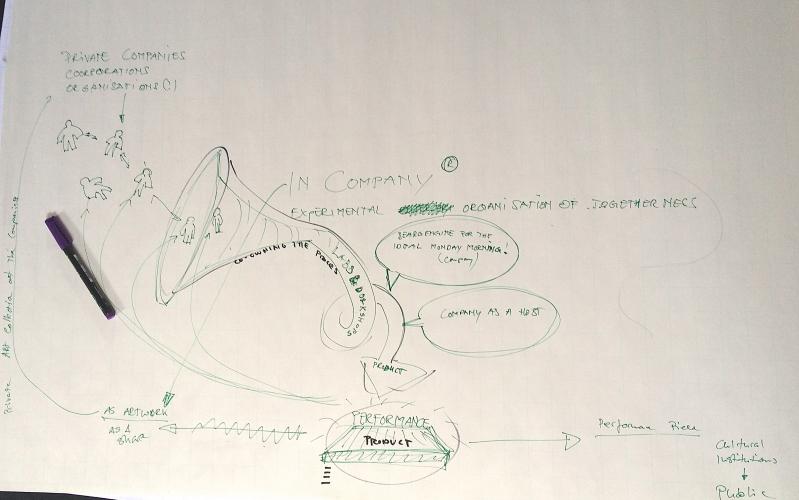 PRIVATE COMPANIES
COORPORATIONS
ORGANISATIONS
IN COMPANY ®
EXPERIMENTAL ORGANISATION OF TOGETHERNESS
CO-OWNING THE PROCES
LABS & WORKSHOPS
SEARCHENGINE FOR THE
IDEAL MONDAY MORNING!
(Company)
COMPANY AS A HOST
PRODUCT
PERFORMANCE
PRODUCT
AS ARTWORK
AS A
Private Art Collection at the Companies
Performan Piece
Cultural
Institutions
Public